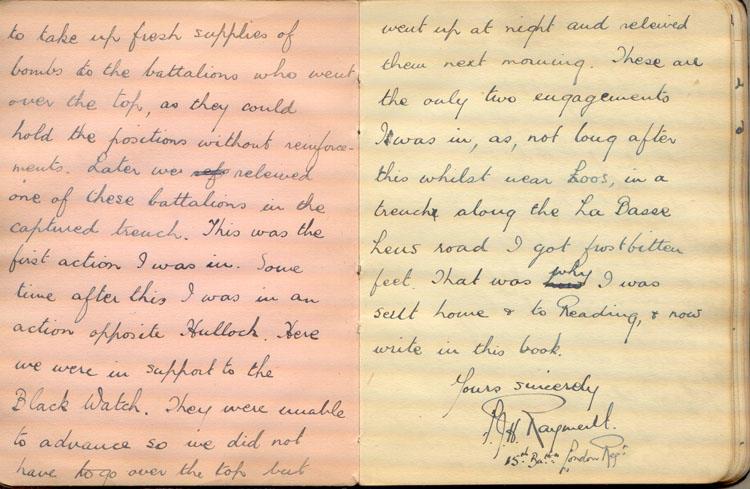 to take up fresh supplies of
bombs to the battalions who went
over the top, as they could
hold the positions without reinforce-
ments. Later we relieved
one of these battalions in the
captured trench. This was the
first action I was in. Some
time after this I was in an
action opposite Hulloch. Here
we were in support to the
Black Watch. They were unable
to advance so we did not
have to go over the top but
went up at night and releived
them next morning. These are
the only two engagements
I was in, as, not long after
this whilst near Loos, in a
trench along the La Basse
Lens road I got frostbitten
feet. That was why I was
sent home & to Reading, & now
write in this book.
Yours sincerely
Rayment.
15th Battn London Regt